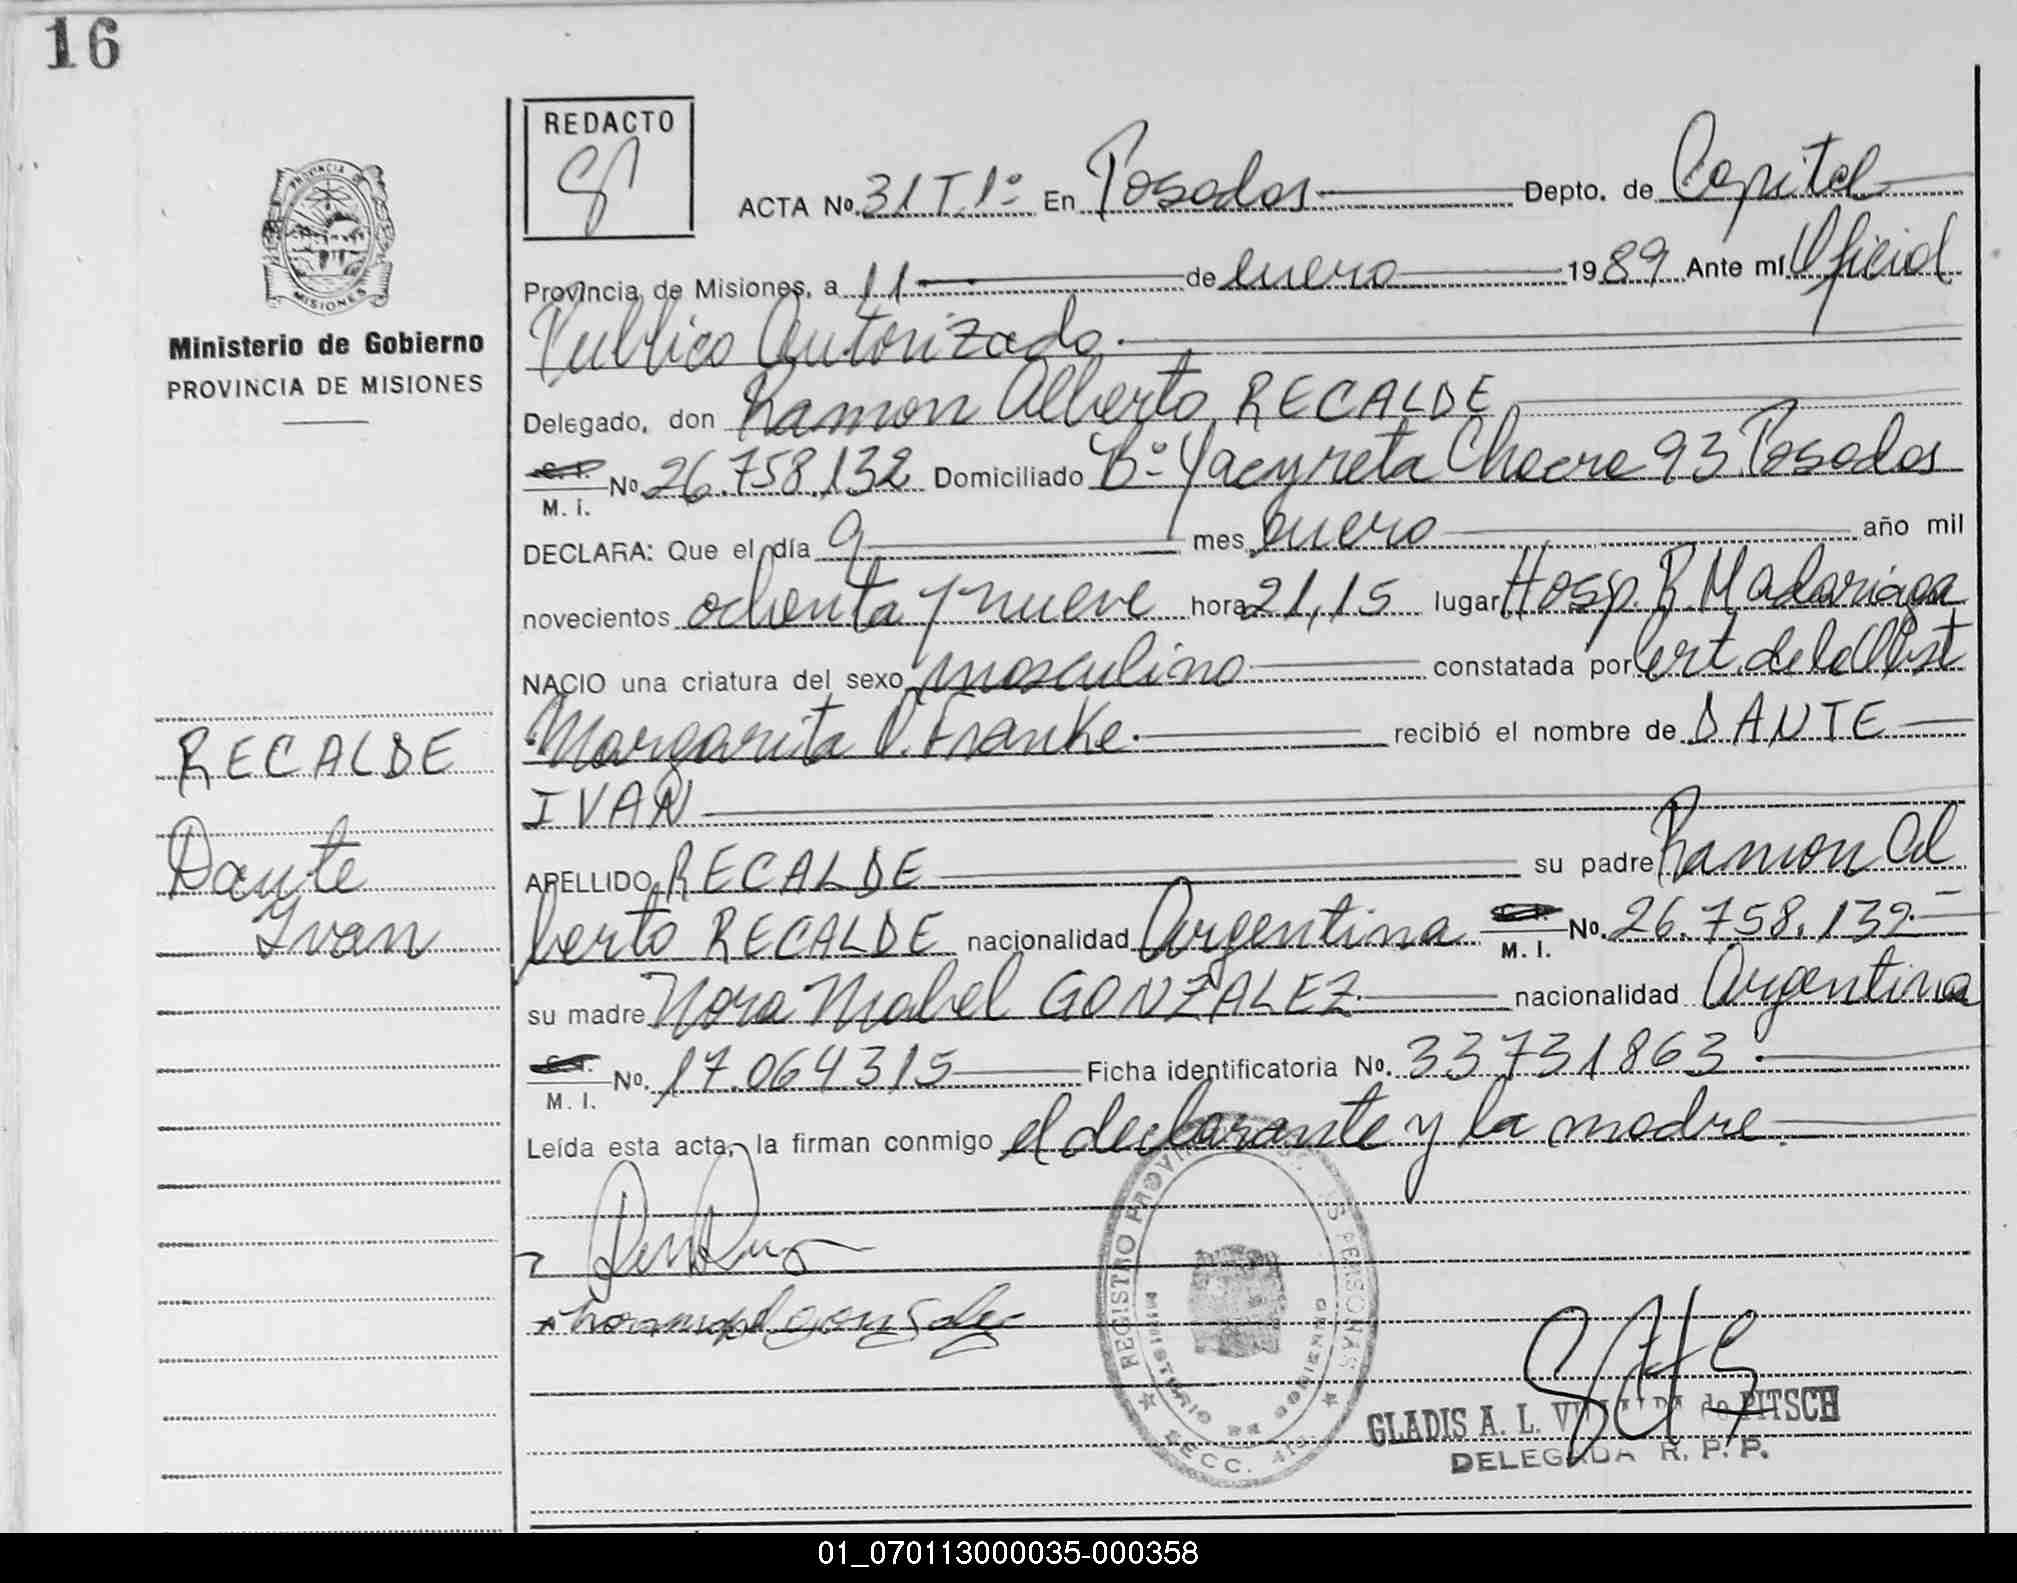 16
PROVINCIA DE
MISIONES
Ministerio de Gobierno
PROVINCIA DE MISIONES
RECALDE
Dante
Ivan
REDACTO
ACTA No. 31 T.1º En Posadas Depto. de Capital
Provincia de Misiones, a 11 de enero 1989 Ante mí Oficial
Publico Autorizado.
Delegado, don Ramon Alberto RECALDE
C. I. No. 26.758.132 Domiciliado Bº Yacyreta Chacra 93 Posadas
M. I.
DECLARA: Que el día 9 mes enero año mil
novecientos ochenta y nueve hora 21,15 lugar Hosp. R. Madariaga
NACIO una criatura del sexo masculino constatada por Cert. de la Obst
Margarita Franke. recibió el nombre de DANTE
IVAN
APELLIDO RECALDE su padre Ramon Al
berto RECALDE nacionalidad Argentina C. I. No. 26.758.132
M. I.
su madre Nora Mabel GONZALEZ nacionalidad Argentina
C. I. No. 17.064315 Ficha identificatoria No. 33731863.
M. I.
Leída esta acta, la firman conmigo el declarante y la madre.
REGISTRO PERSONAS
MINISTERIO DE GOBIERNO
SECC.
GLADIS A. L. de PITSCH
DELEGADA R. P. P.
01_070113000035-000358